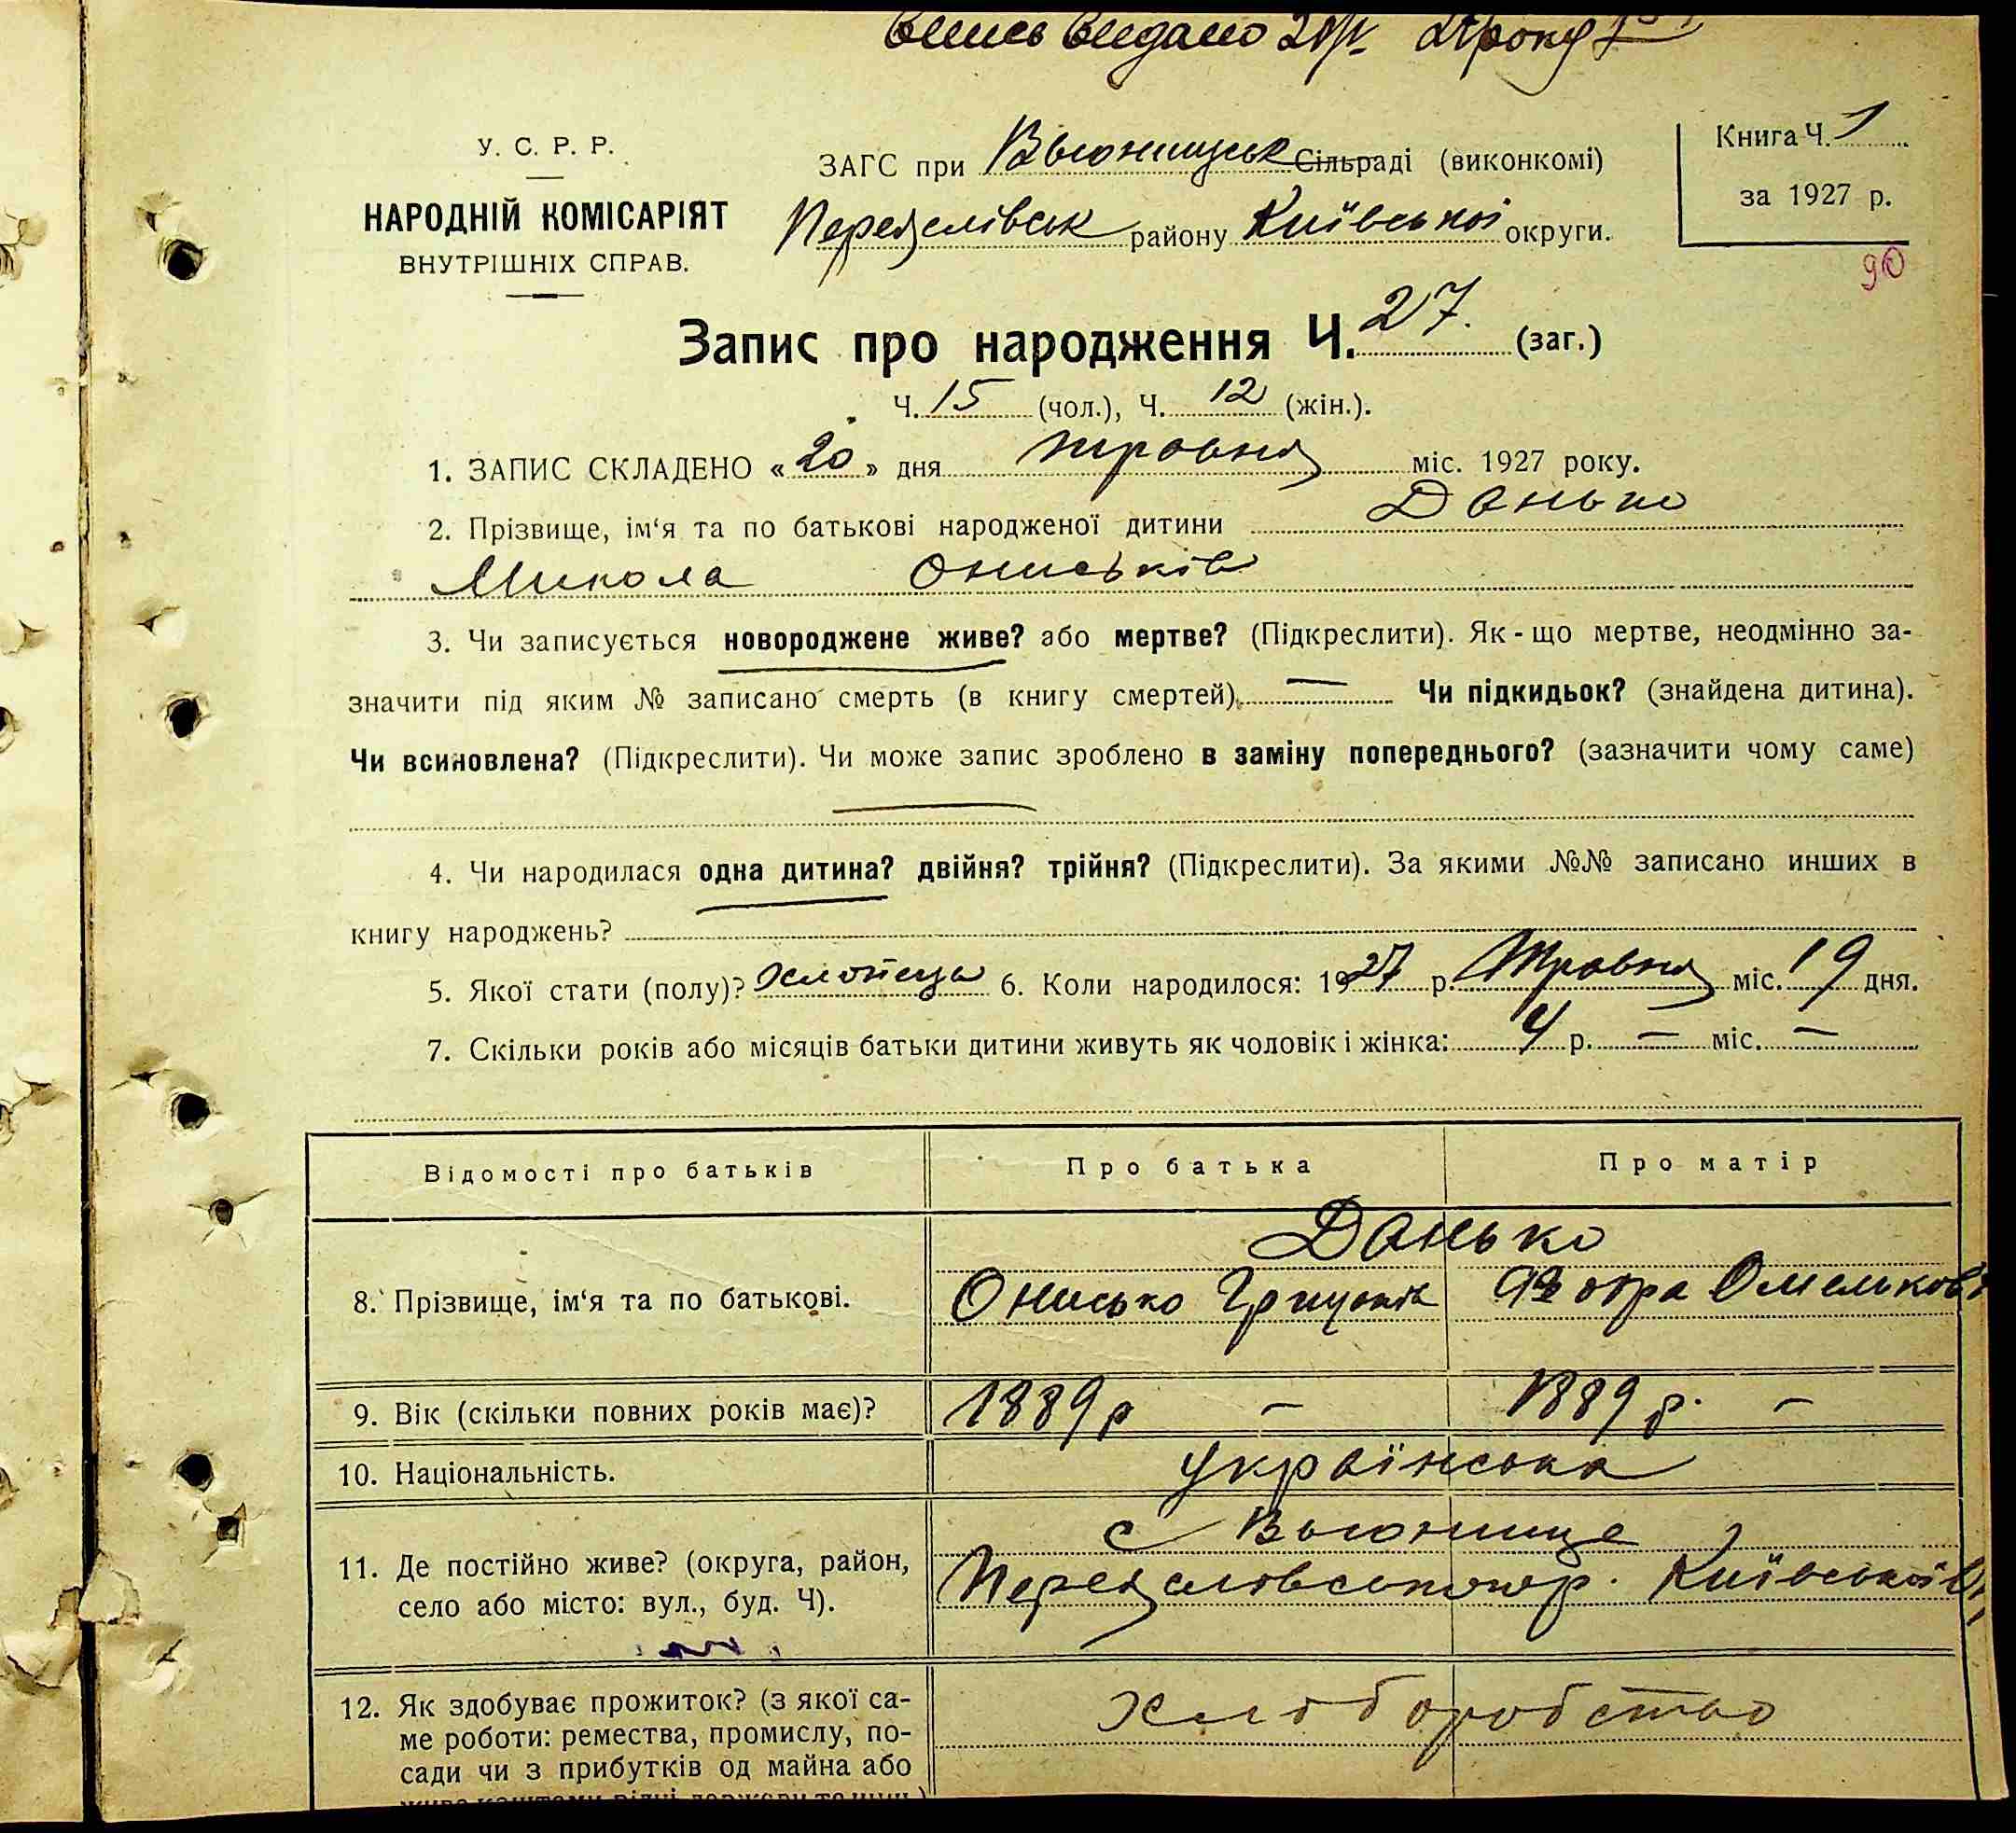 випись видано 20/IV року
У. С. Р. Р.
НАРОДНІЙ КОМІСАРІЯТ
ВНУТРІШНІХ СПРАВ.
ЗАГС при Вьюнищськ Сільраді (виконкомі)
Переяслівськ району Київської округи.
Книга Ч. 1
за 1927 р.
90
Запис про народження Ч. 27. (заг.)
Ч. 15 (чол.), Ч. 12 (жін.).
1. ЗАПИС СКЛАДЕНО « 20 » дня травня міс. 1927 року.
2. Прізвище, ім‘я та по батькові народженої дитини Данько
МиколаОниськів
3. Чи записується новороджене живе? або мертве? (Підкреслити). Як-що мертве, неодмінно за-
значити під яким № записано смерть (в книгу смертей). — Чи підкидьок? (знайдена дитина).
Чи всиновлена? (Підкреслити). Чи може запис зроблено в заміну попереднього? (зазначити чому саме)
—
4. Чи народилася одна дитина? двійня? трійня? (Підкреслити). За якими №№ записано инших в
книгу народжень?
5. Якої стати (полу)? Хлопець 6. Коли народилося: 1927 р. Травня міс. 19 дня.
7. Скільки років або місяців батьки дитини живуть як чоловік і жінка: 4 р. — міс. —
Відомості про батьків Про батька Про матір
Данько
8. Прізвище, ім‘я та по батькові. Онисько Грицьків Омельков
9. Вік (скільки повних років має)? 1889 р — 1889 р. —
10. Національність. Українська
с Вьюнище
11. Де постійно живе? (округа, район,
село або місто: вул., буд. Ч). Переяславського р. Київської
12. Як здобуває прожиток? (з якої са- Хліборобство
ме роботи: ремества, промислу, по-
сади чи з прибутків од майна або